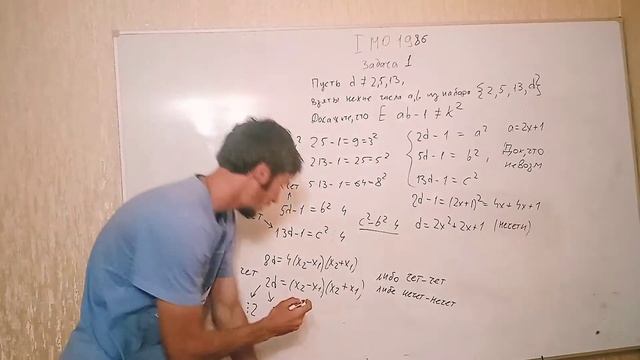 IMO 1986
Задача 1
Пусть d ≠ 2,5,13,
взяты некие числа a,b из набора {2,5,13,d}
Докажите, что ∃ ab-1 ≠ k²
2·5-1=9=3²
2·13-1=25=5²
5·13-1=64=8²
5d-1=b² 4
13d-1=c² 4
c²-b² 4
2d-1=a² a=2x+1
5d-1=b²,
13d-1=c²
Док, что невозм
2d-1=(2x+1)²=4x+4x+1
d=2x²+2x+1 (нечетн)
8d=4(x₂-x₁)(x₂+x₁)
чет
2d=(x₂-x₁)(x₂+x₁)
либо чет-чет
либо нечет-нечет
⋮2